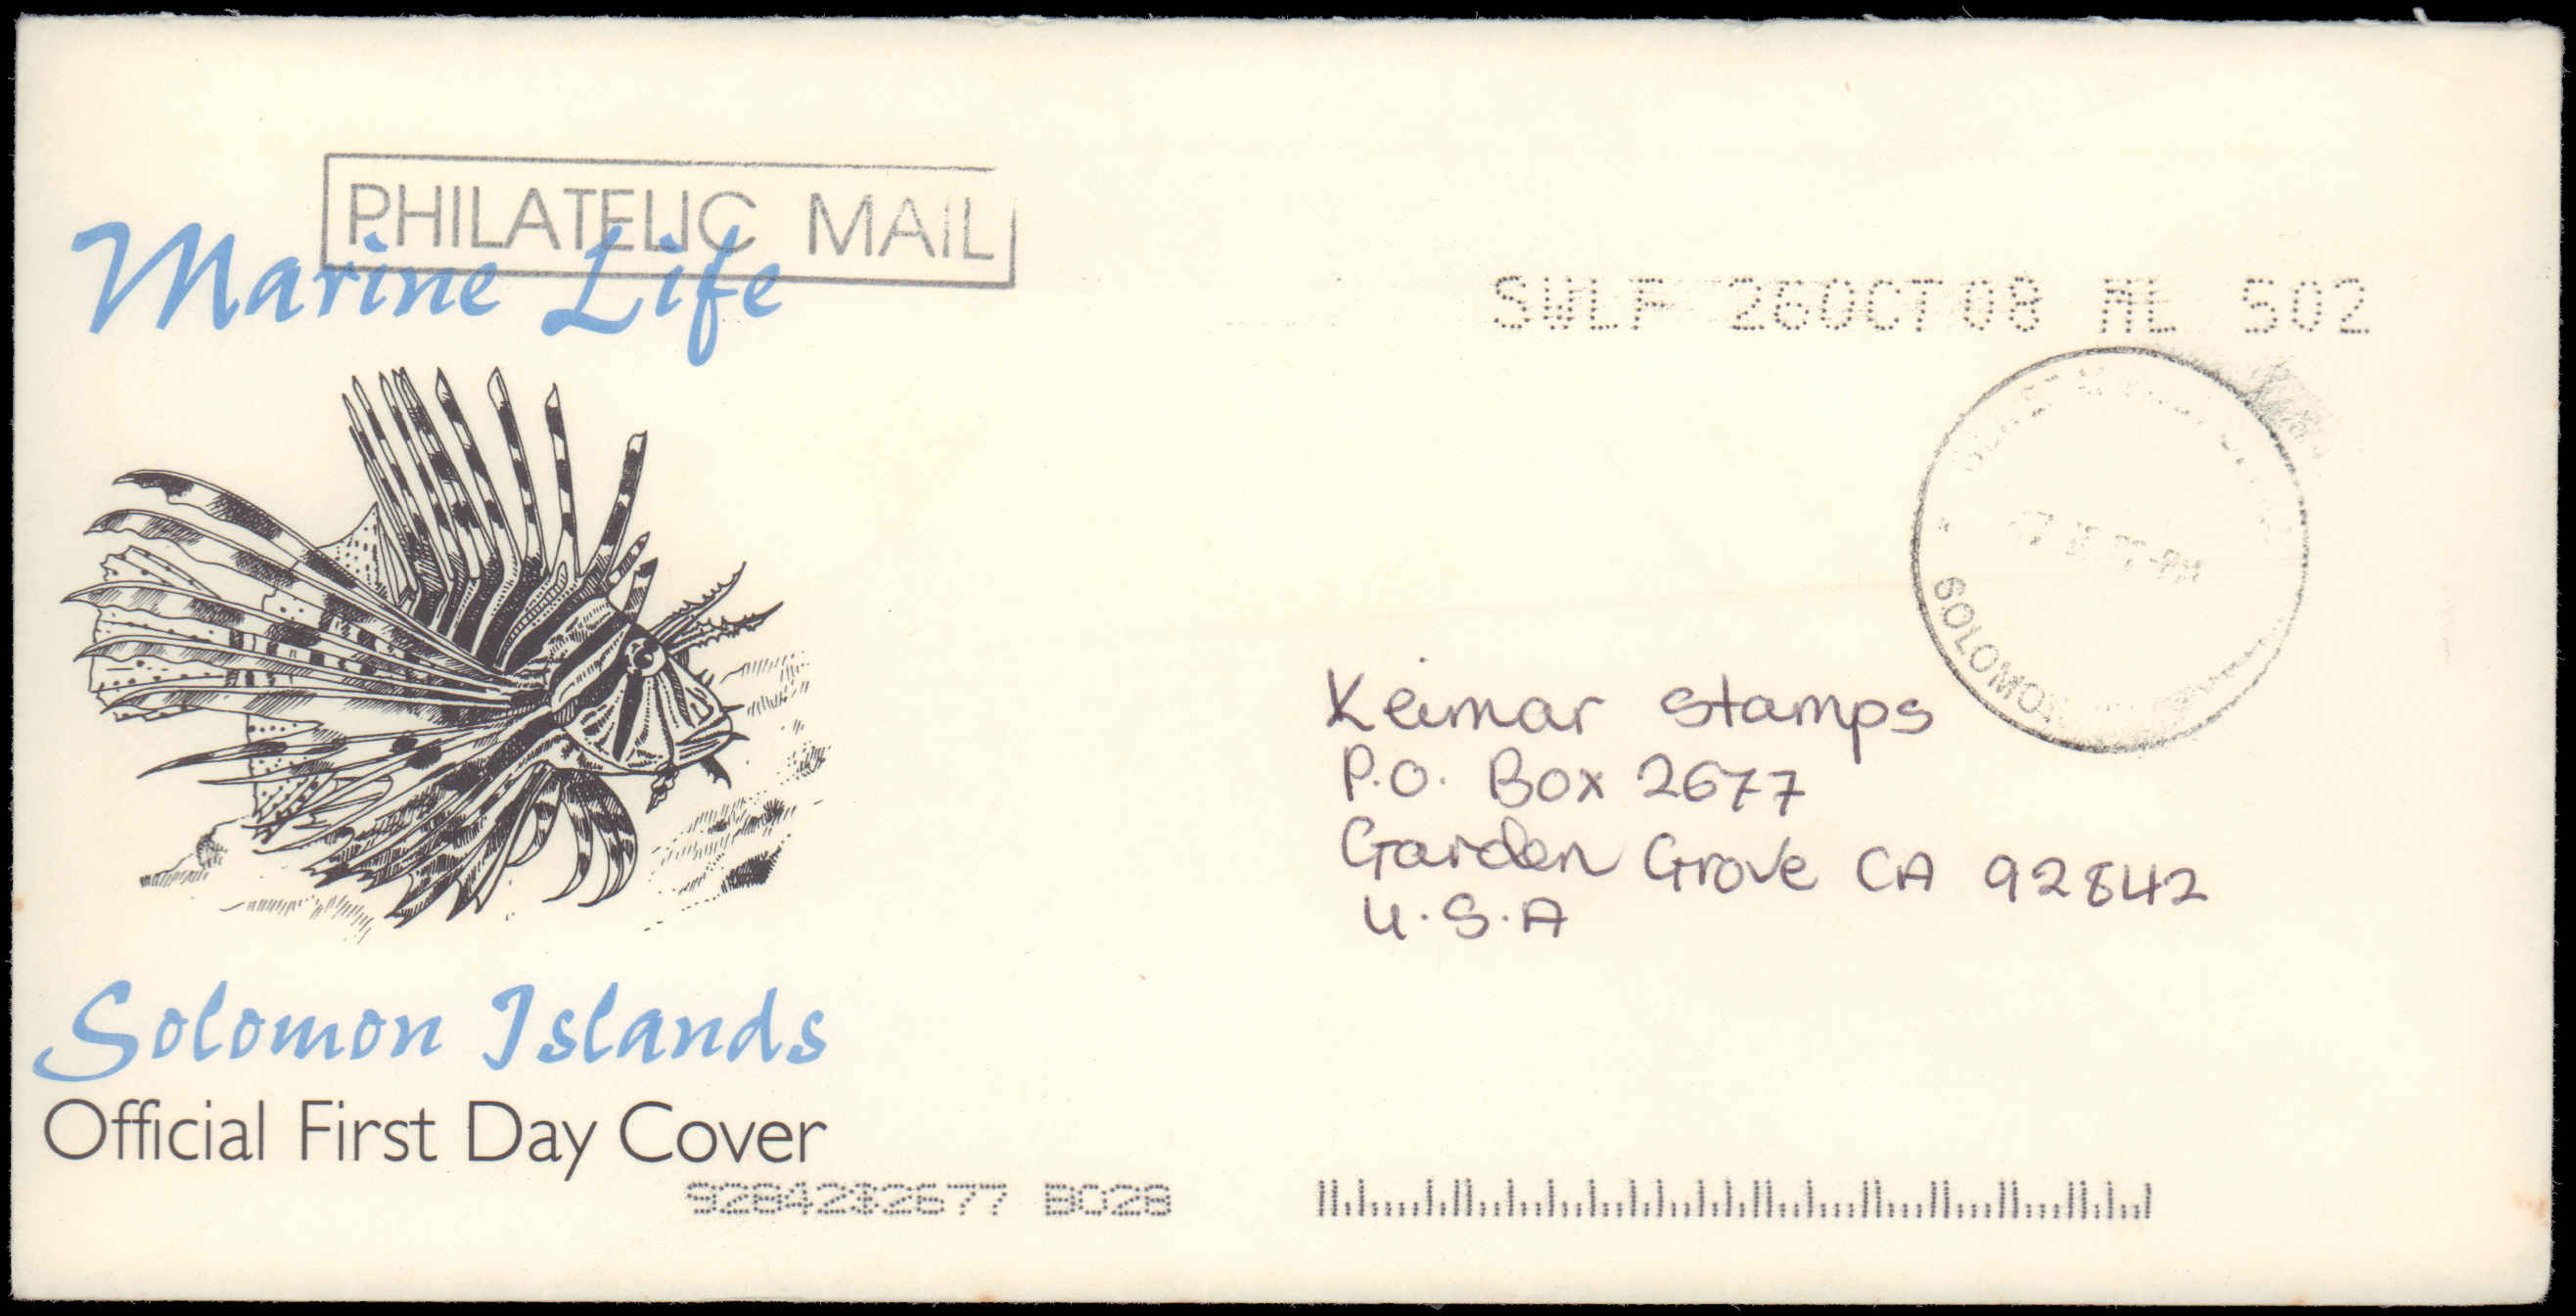 PHILATELIC MAIL
Marine Life
SWLF 26OCT08 ML 502
SOLOMON
Keimar Stamps
P.O. Box 2677
Garden Grove CA 92842
U.S.A
Solomon Islands
Official First Day Cover
92842$2677 B028